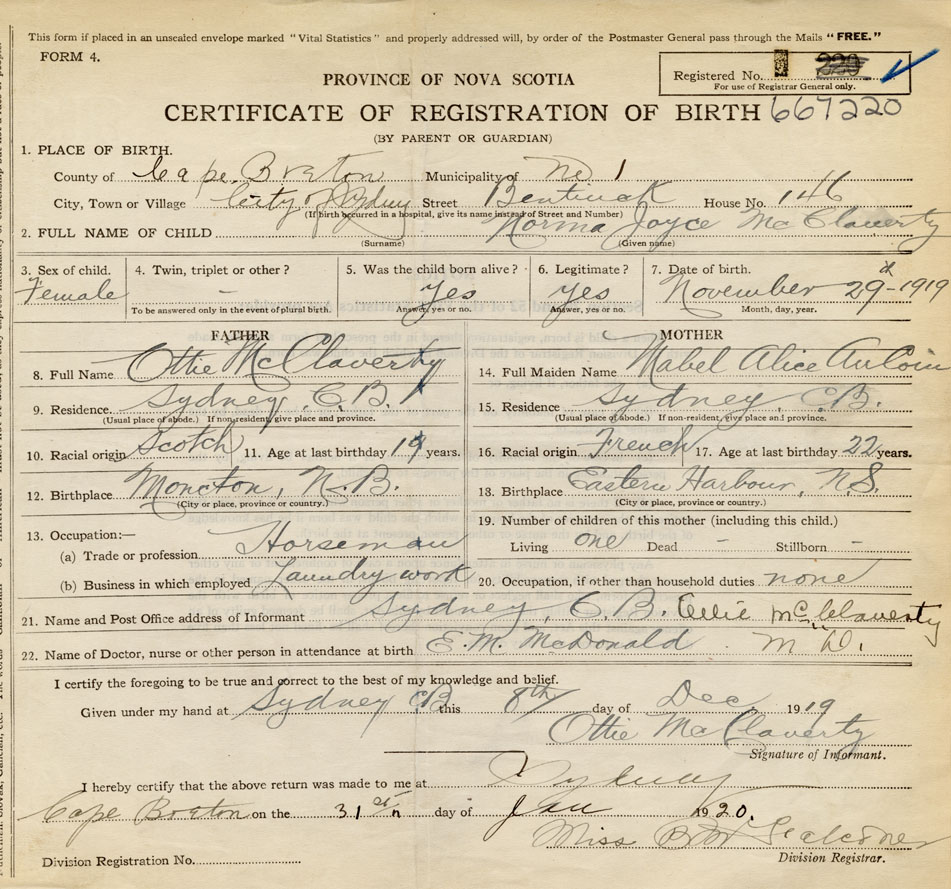 This form if placed in an unsealed envelope marked "Vital Statistics" and properly addressed will, by order of the Postmaster General pass through the Mails "FREE."
FORM 4.
Registered No. 220
For use of Registrar General only.
PROVINCE OF NOVA SCOTIA
CERTIFICATE OF REGISTRATION OF BIRTH 667220
(BY PARENT OR GUARDIAN)
1. PLACE OF BIRTH.
County of Cape Breton Municipality of No 1
City, Town or Village City of Sydney Street Bentinck House No. 146
(If birth occurred in a hospital, give its name instead of Street and Number)
2. FULL NAME OF CHILD Norma Joyce McClaverty
(Surname) (Given name)
3. Sex of child. 4. Twin, triplet or other? 5. Was the child born alive? 6. Legitimate? 7. Date of birth.
Female - yes yes November 29th 1919
To be answered only in the event of plural birth. Answer, yes or no. Answer, yes or no. Month, day, year.
FATHER MOTHER
8. Full Name Ottie McClaverty 14. Full Maiden Name Mabel Alice AuCoin
9. Residence. Sydney, C.B. 15. Residence Sydney, C.B.
(Usual place of abode.) If non-resident, give place and province. (Usual place of abode.) If non-resident, give place and province.
10. Racial origin Scotch 11. Age at last birthday 19 years. 16. Racial origin French 17. Age at last birthday 22 years.
12. Birthplace Moncton, N.B. 18. Birthplace Eastern Harbour, N.S.
(City or place, province or country.) (City or place, province or country.)
13. Occupation:— 19. Number of children of this mother (including this child.)
(a) Trade or profession Horseman Living one Dead - Stillborn -
(b) Business in which employed Laundry work 20. Occupation, if other than household duties none
21. Name and Post Office address of Informant Sydney, C.B. McClaverty
22. Name of Doctor, nurse or other person in attendance at birth E.M. McDonald M.D.
I certify the foregoing to be true and correct to the best of my knowledge and belief.
Given under my hand at Sydney C.B. this 8th day of Dec 1919
Ottie McClaverty
Signature of Informant.
I hereby certify that the above return was made to me at Sydney
Cape Breton on the 31st day of Jan 1920.
Miss
Division Registration No. Division Registrar.